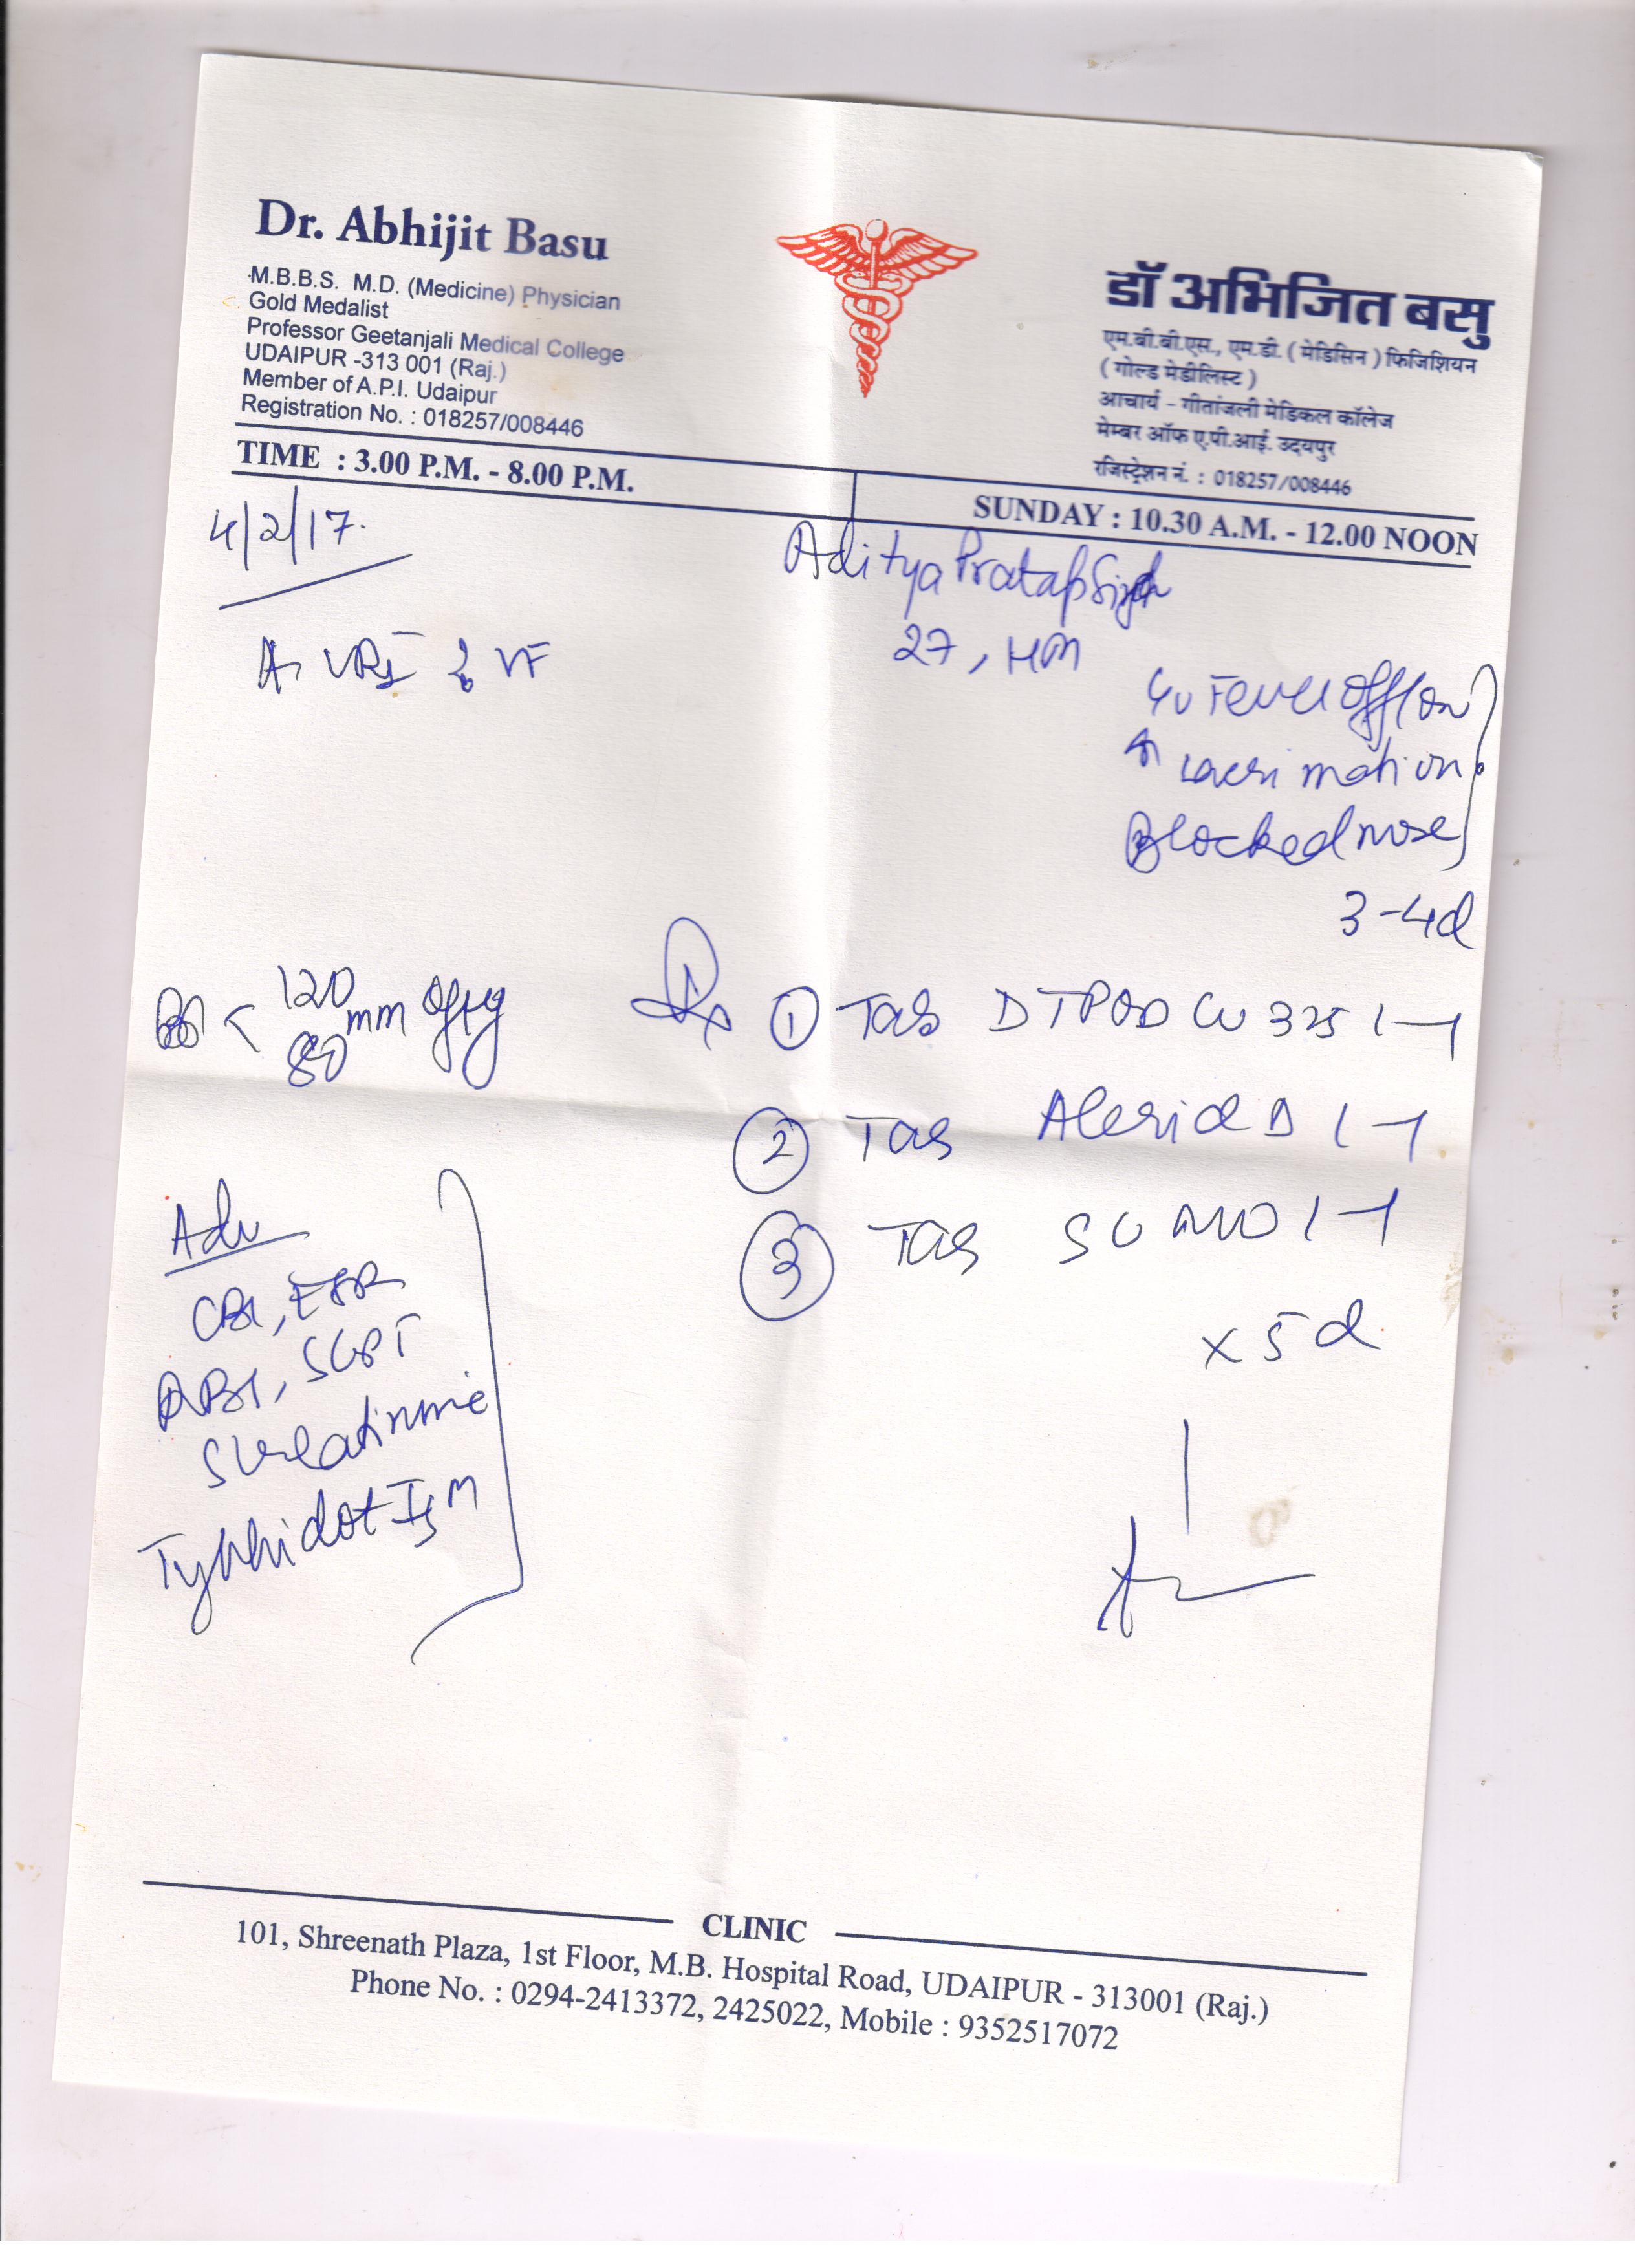 Dr. Abhijit Basu
M.B.B.S. M.D. (Medicine) Physician
Gold Medalist
Professor Geetanjali Medical College
UDAIPUR -313 001 (Raj.)
Member of A.P.I. Udaipur
Registration No. : 018257/008446
डॉ अभिजित बसु
एम.बी.बी.एस., एम.डी. ( मेडिसिन ) फिजिशियन
( गोल्ड मेडीलिस्ट )
आचार्य - गीतांजली मेडिकल कॉलेज
मेम्बर ऑफ ए.पी.आई. उदयपुर
रजिस्ट्रेशन नं. : 018257/008446
TIME : 3.00 P.M. - 8.00 P.M.
SUNDAY : 10.30 A.M. - 12.00 NOON
4/2/17.
Aditya Pratap Singh
27,
URI VF
Fever off/on
↑ Lacrimation
Blocked nose
3-4d
120
80 mm of Hg
Rx
① Tab 325 1-1
② Tab Alerid D 1-1
③ Tab SUMO 1-1
x 5 d
Adv
ESR
SGPT
S Creatinine
Typhidot IgM
CLINIC
101, Shreenath Plaza, 1st Floor, M.B. Hospital Road, UDAIPUR - 313001 (Raj.)
Phone No. : 0294-2413372, 2425022, Mobile : 9352517072